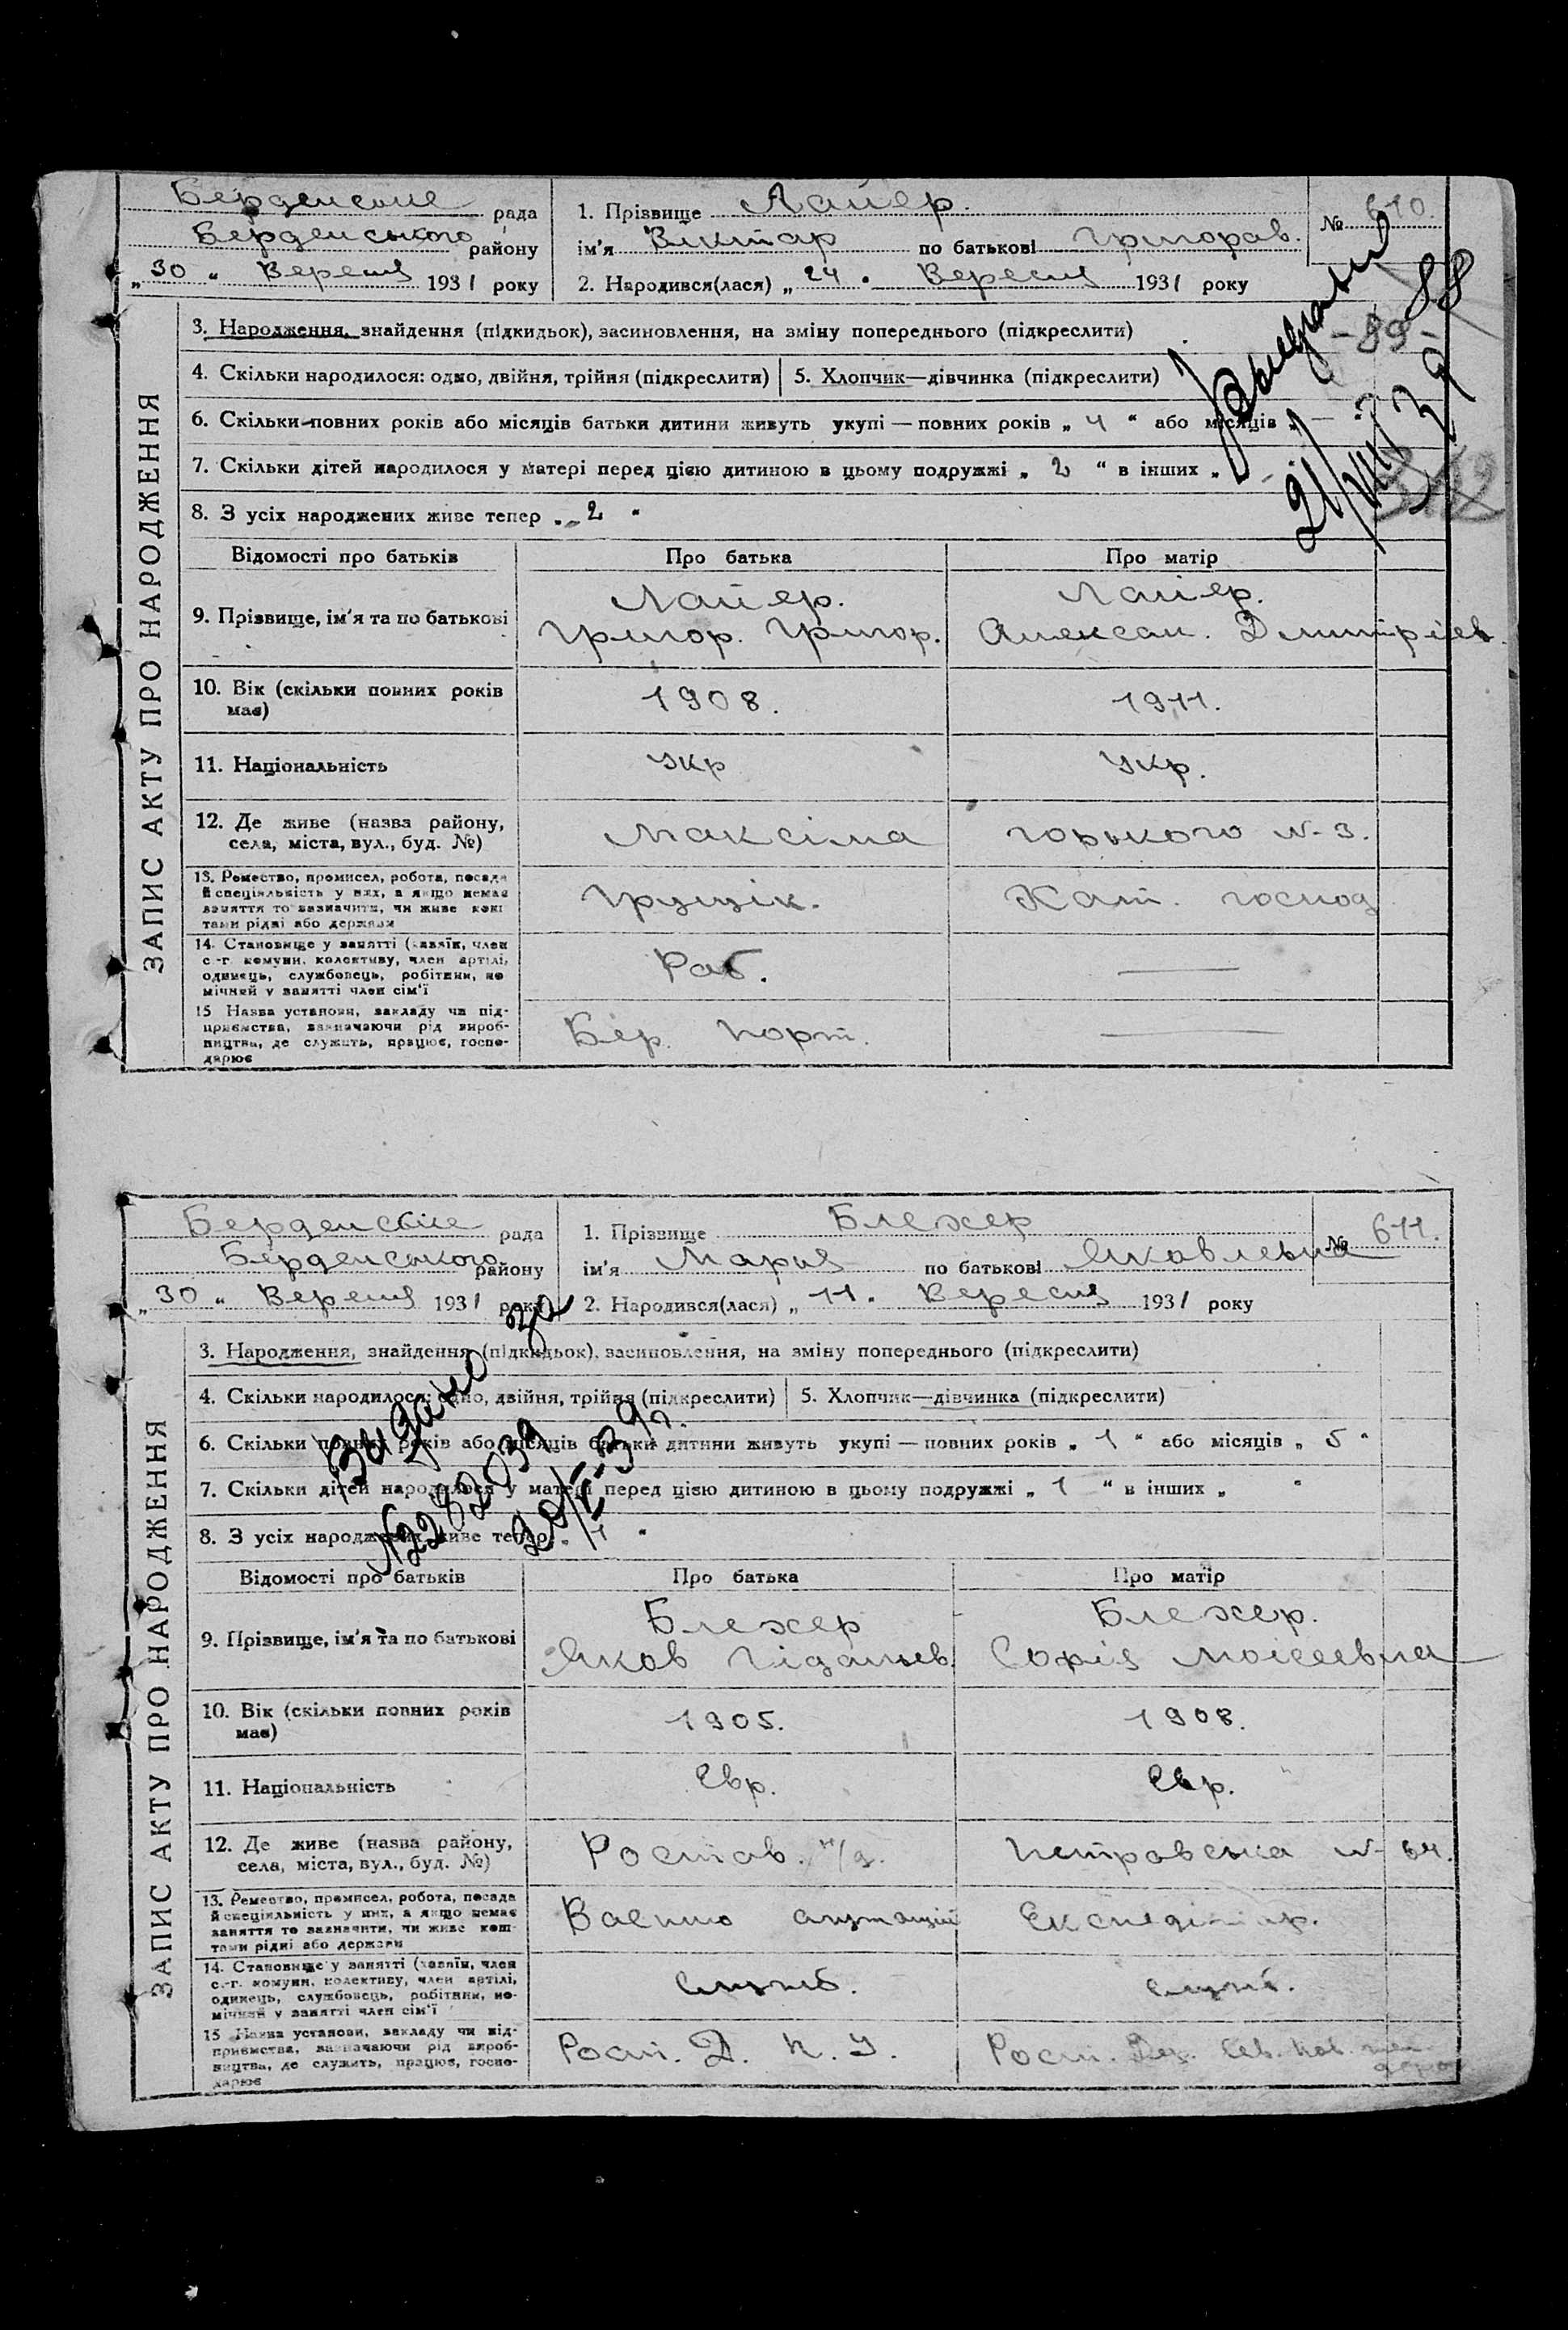 Берденське рада
Берденського району
„ 30 “ Вересня 1931 року
1. Прізвище Лайер.
ім'я Виктар по батькові Григорав.
2. Народився(лася) „ 24 “ Вересня 1931 року
№ 610.
88
- 89 -
21/VIII 39
ЗАПИС АКТУ ПРО НАРОДЖЕННЯ
3. Народження, знайдення (підкидьок), засиновлення, на зміну попереднього (підкреслити)
4. Скільки народилося: одно, двійня, трійня (підкреслити) 5. Хлопчик—дівчинка (підкреслити)
6. Скільки повних років або місяців батьки дитини живуть укупі — повних років „ 4 “ або місяців „ —
7. Скільки дітей народилося у матері перед цією дитиною в цьому подружжі „ 2 “ в інших „ -
8. З усіх народжених живе тепер „ 2 “
Відомості про батьків Про батька Про матір
9. Прізвище, ім'я та по батькові Лайер. Григор. Григор. Лайер. Алексан. Дмитріев.
10. Вік (скільки повних років має) 1908. 1911.
11. Національність Укр Укр.
12. Де живе (назва району, села, міста, вул., буд. №) Максіма горького N- 3.
13. Ремество, промисел, робота, посада й спеціяльність у них, а якщо немає заняття то зазначити, чи живе коштами рідні або держави Грущік. Хат. господ
14. Становище у занятті (хазяїн, член с.-г. комуни, колективу, член артілі, одинець, службовець, робітник, помічний у занятті член сім'ї Раб. —
15 Назва установи, закладу чи підприємства, зазначаючи рід виробництва, де служить, працює, господарює Бер. порт. —
Берденське рада
Берденського району
„ 30 “ Вересня 1931 року
1. Прізвище Блехер
ім'я Марья по батькові Яковлевна
2. Народився(лася) „ 11 “ Вересня 1931 року
№ 611.
ЗАПИС АКТУ ПРО НАРОДЖЕННЯ
3. Народження, знайдення (підкидьок), засиновлення, на зміну попереднього (підкреслити)
4. Скільки народилося: одно, двійня, трійня (підкреслити) 5. Хлопчик—дівчинка (підкреслити)
6. Скільки повних років або місяців батьки дитини живуть укупі — повних років „ 1 “ або місяців „ 5 “
7. Скільки дітей народилося у матері перед цією дитиною в цьому подружжі „ 1 “ в інших „ “
8. З усіх народжених живе тепер „ 1 “
Видано
Відомості про батьків Про батька Про матір
9. Прізвище, ім'я та по батькові Блехер Яков Блехер. Софія Моісеевна
10. Вік (скільки повних років має) 1905. 1908.
11. Національність Евр. Евр.
12. Де живе (назва району, села, міста, вул., буд. №) Ростов. н/д. Петровська N- 64.
13. Ремество, промисел, робота, посада й спеціяльність у них, а якщо немає заняття то зазначити, чи живе коштами рідні або держави
14. Становище у занятті (хазяїн, член с.-г. комуни, колективу, член артілі, одинець, службовець, робітник, помічний у занятті член сім'ї Служб. служб.
15 Назва установи, закладу чи підприємства, зазначаючи рід виробництва, де служить, працює, господарює Рост. Д. П. У. Рост.